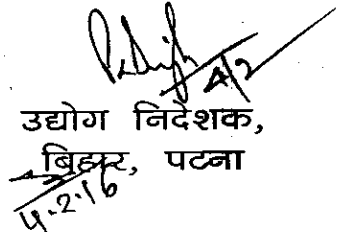 4/2
उद्योग निदेशक,
बिहार, पटना
4.2.16